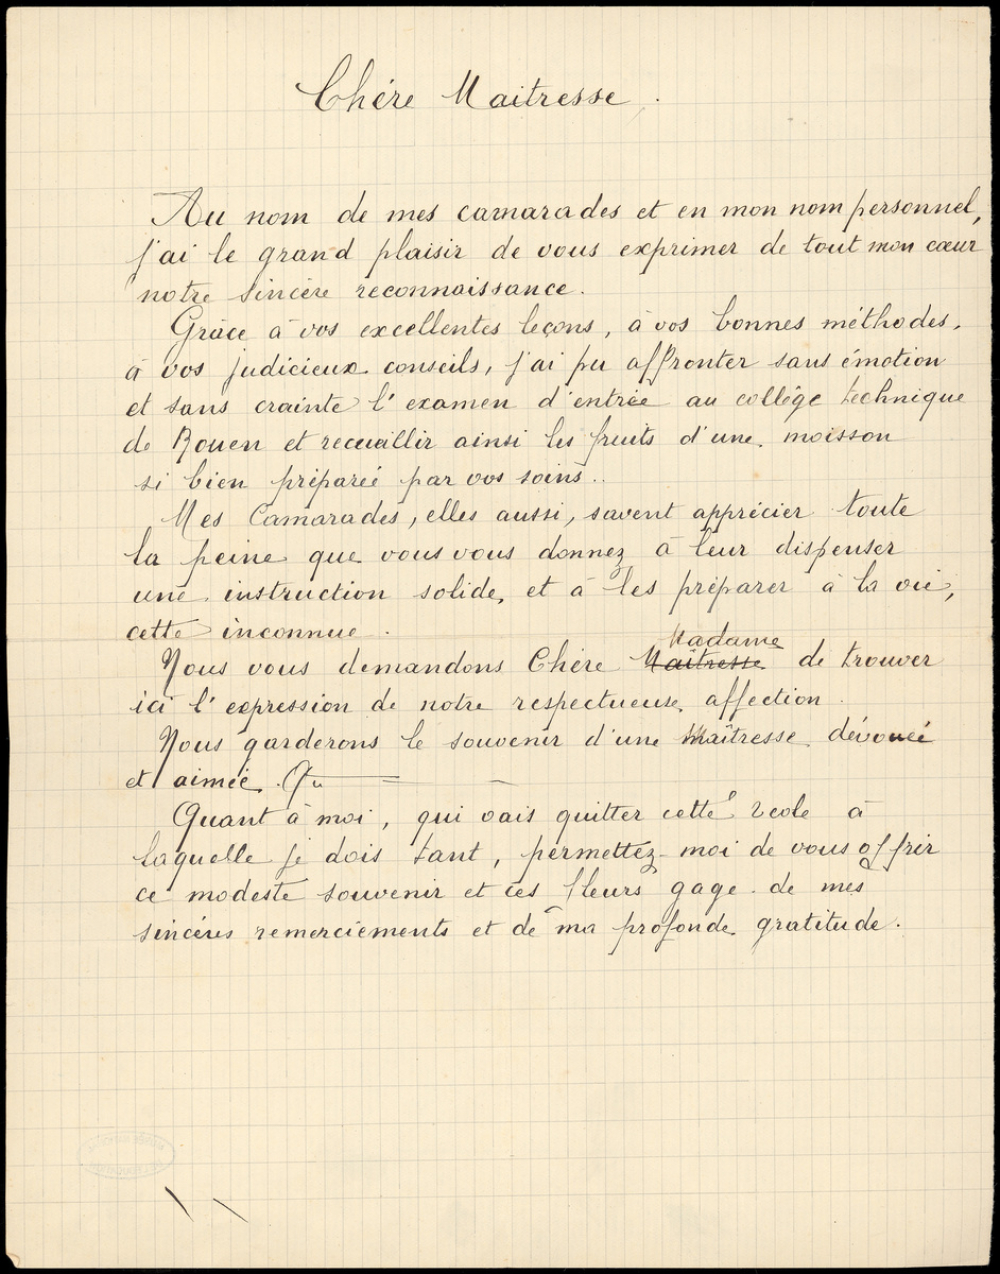 Chère Maitresse.
Au nom de mes camarades et en mon nom personnel,
j'ai le grand plaisir de vous exprimer de tout mon cœur
notre sincère reconnaissance.
Grâce à vos excellentes leçons, à vos bonnes méthodes,
à vos judicieux conseils, j'ai pu affronter sans émotion
et sans crainte l'examen d'entrée au collège technique
de Rouen et receuillir ainsi les fruits d'une moisson
si bien préparée par vos soins..
Mes Camarades, elles aussi, savent apprécier toute
la peine que vous vous donnez à leur dispenser
une instruction solide, et à les préparer à la vie,
cette inconnue.
Madame
Nous vous demandons Chère Maîtresse de trouver
ici l'expression de notre respectueuse affection.
Nous garderons le souvenir d'une Maîtresse dévouée
et aimée. Qu
Quant à moi, qui vais quitter cette école à
laquelle je dois tant, permettez-moi de vous offrir
ce modeste souvenir et ces fleurs gage de mes
sincères remerciements et de ma profonde gratitude.